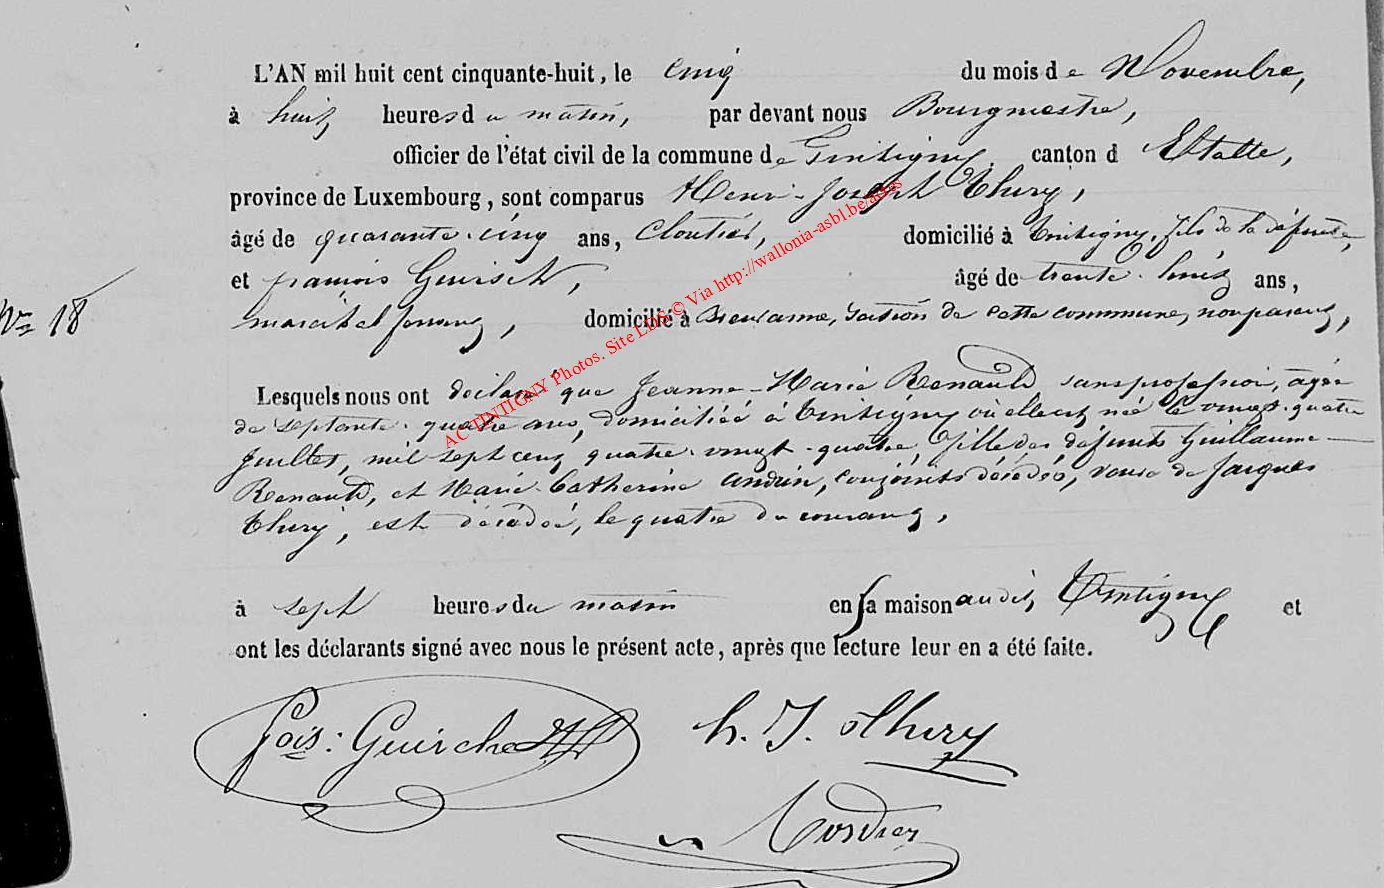 L'AN mil huit cent cinquante-huit, le cinq du mois de Novembre,
à huit heures du matin, par devant nous Bourgmestre,
officier de l'état civil de la commune de Tintigny, canton d'Etalle,
province de Luxembourg, sont comparus Henri-Joseph Thiry,
âgé de quarante-cinq ans, cloutier, domicilié à Tintigny, fils de la défunte,
et françois Guirsch, âgé de trente-huit ans,
N° 18
marechal ferrant, domicilié à section de cette commune, non parent,
Lesquels nous ont déclaré que Jeanne-Marie Renauld sans profession, agée
de septante-quatre ans, domiciliée à Tintigny où elle est née le vingt-quatre
Juillet, mil sept cent quatre-vingt-quatre, fille des défunts Guillaume
Renauld, et Marie-Catherine conjoints décédés, veuve de Jacques
Thiry, est décédée, le quatre du courant,
à sept heures du matin en sa maison audit Tintigny et
ont les déclarants signé avec nous le présent acte, après que lecture leur en a été faite.
fois: Guirche h. J. Thiry
AC DINTIGNY Photos. Site LDS © Via http://wallonia-asbl.be/actes